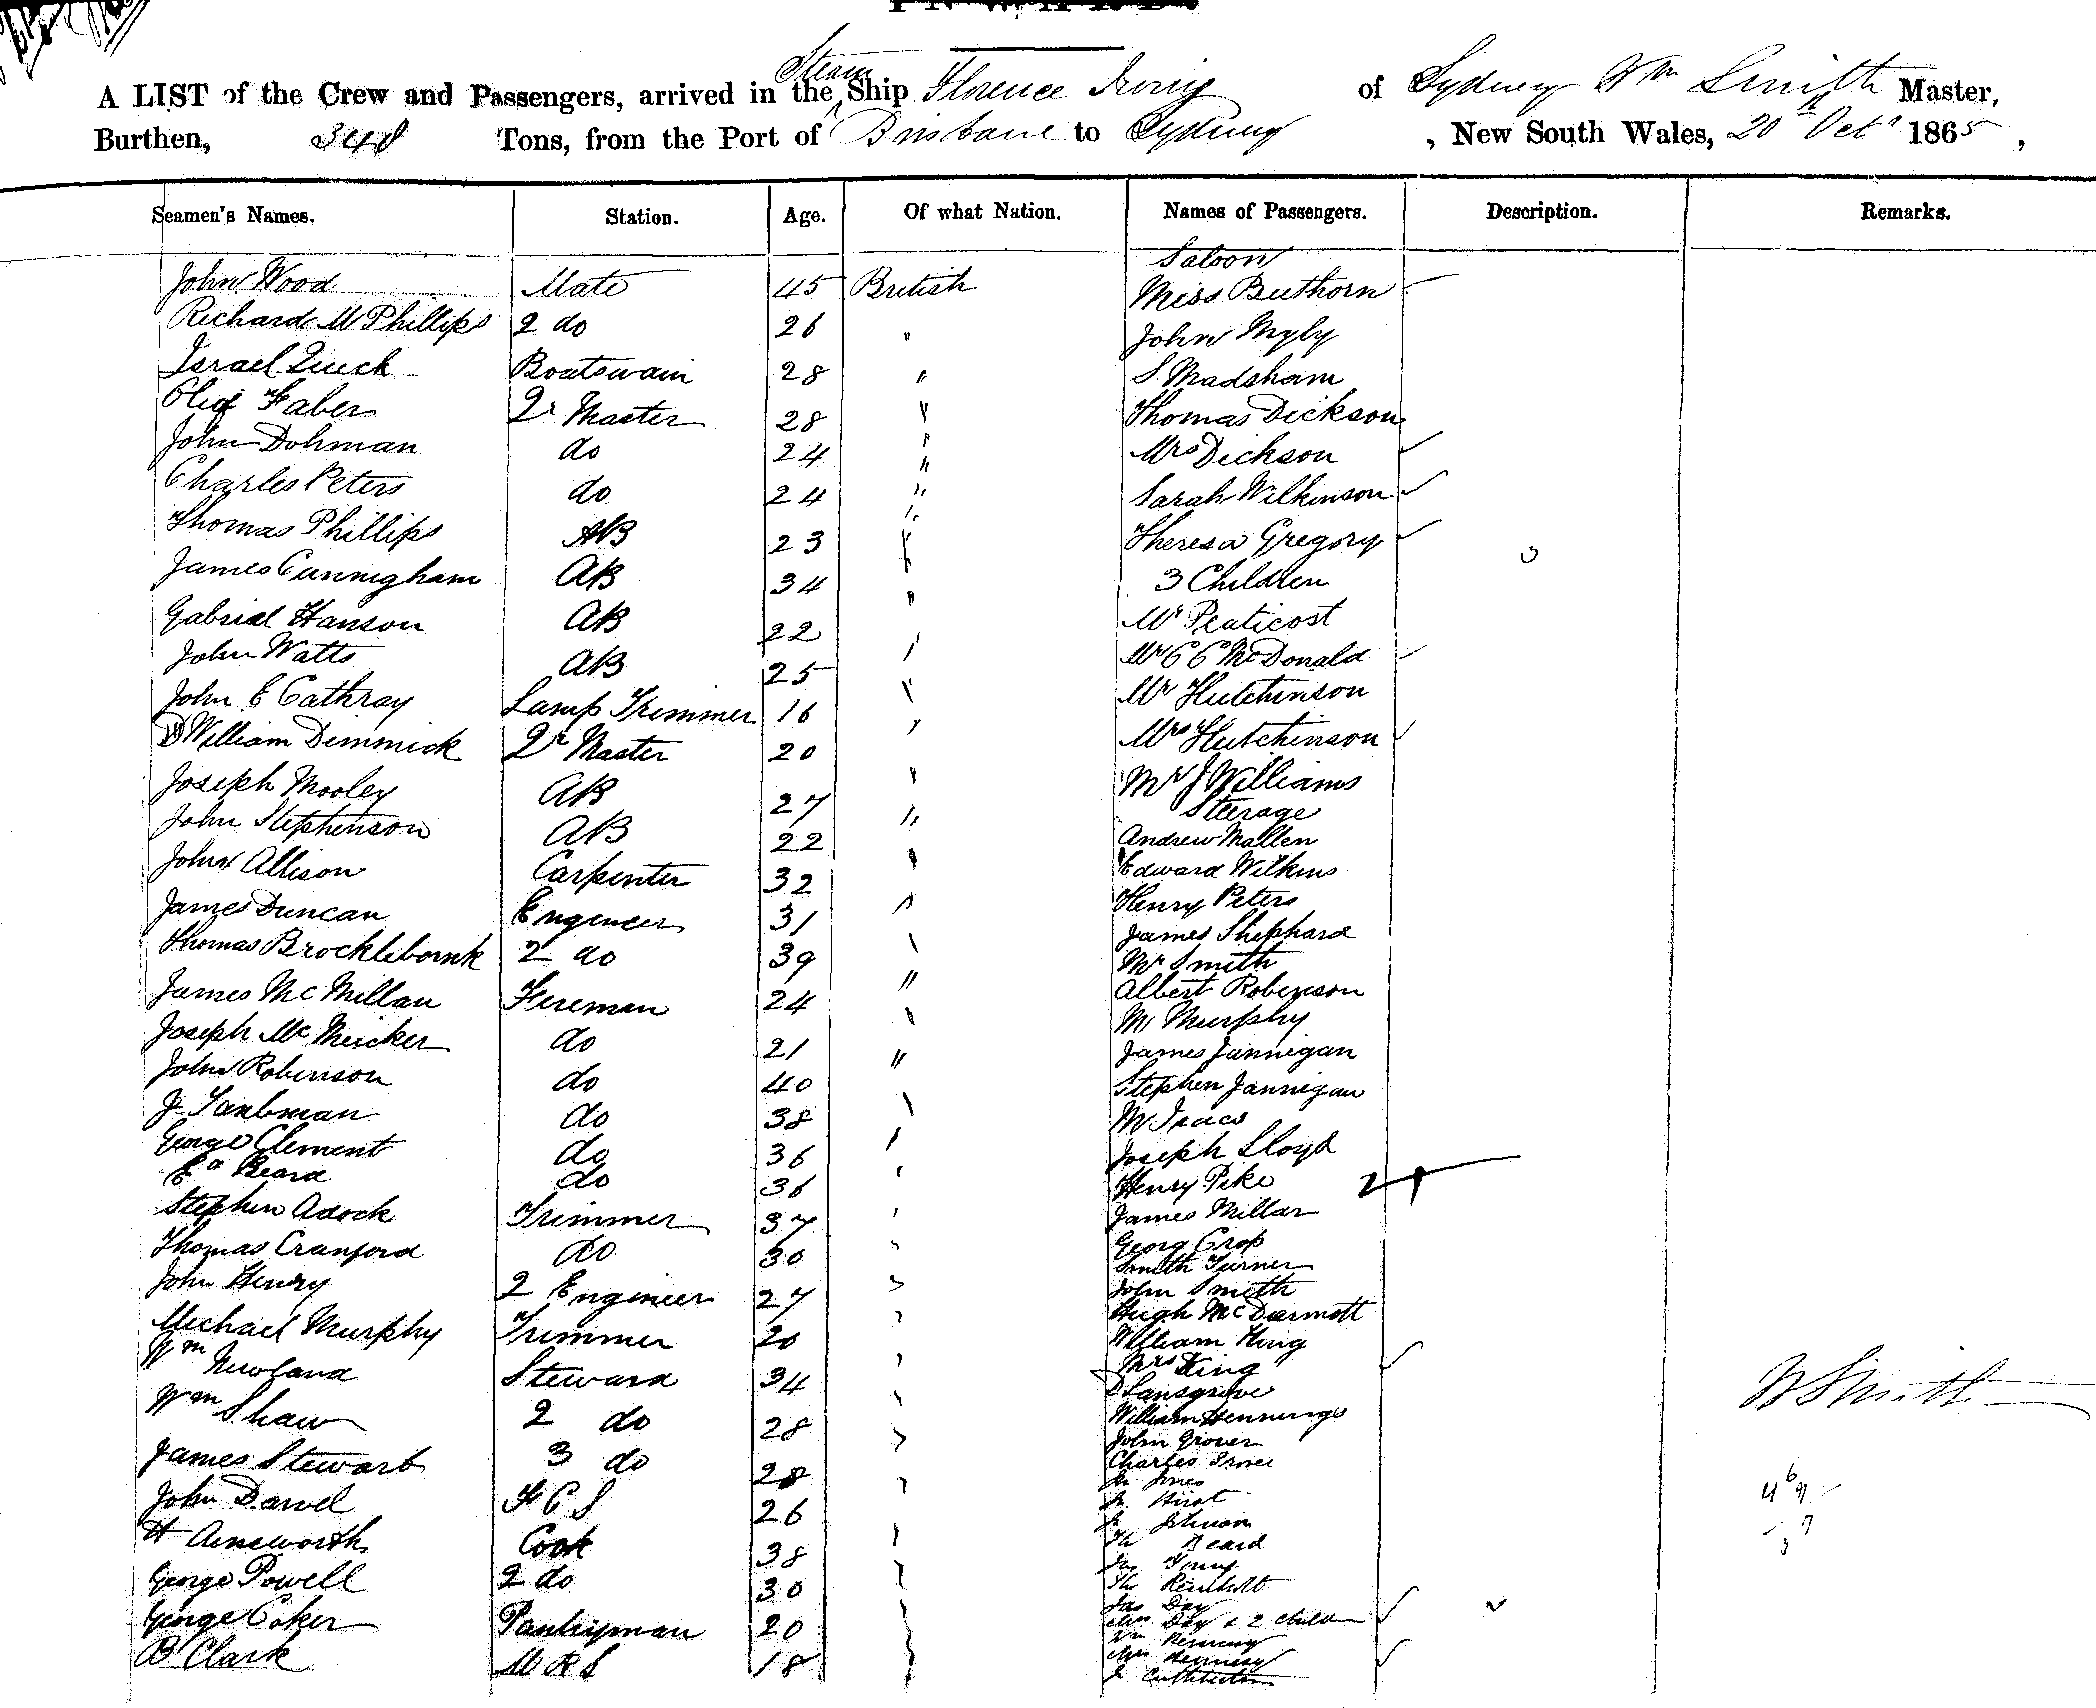 Steam
A LIST of the Crew and Passengers, arrived in the Ship Florence Irving of Sydney Wm Smith Master,
Burthen, 348 Tons, from the Port of Brisbane to Sydney, New South Wales, 20th Octr 1865,
Seamen's Names. Station. Age. Of what Nation. Names of Passengers. Description. Remarks.
Saloon
John Wood Mate 45 British Miss Buthorn
Richard M Phillips 2 do 26 " John
Israel Quick Boatswain 28 " S. Madsham
Faber Qr Master 28 " Thomas Dickson
John Dohman do 24 " Mrs Dickson
Charles Peters do 24 " Sarah Wilkinson
Thomas Phillips AB 23 " Theresa Gregory
James Cunnigham AB 34 " 3 Children 3
Gabriel Hanson AB 22 " Mr Penticost
John Watts AB 25 " Mr C C McDonald
John E Cathray Lamp Trimmer 16 " Mr Hutchinson
William Dimmick Qr Master 20 " Mrs Hutchinson
Joseph Mooley AB 27 " Mr J Williams
Steerage
John Stephenson AB 22 " Andrew Mallen
John Allison Carpenter 32 " Edward Wilkins
James Duncan Engineer 31 " Henry Peters
James Shephard
Thomas Brocklibornk 2 do 39 " Mr Smith
James McMillan Fireman 24 " Albert Robinson
Mr Murphy
Joseph McMeicker do 21 " James Jannigan
John Robinson do 40 Stephen Jannigan
J Tanbman do 38 " Mr Isacs
George Clement do 36 " Joseph Lloyd
Ed Beard do 36 " Henry Pike 24
Stephen Adock Trimmer 37 " James Millar
Thomas Cranford do 30 " Georg Crop
Smith Turner
John Henry 2 Engineer 27 " John Smith
Hugh McDarmott
Michael Murphy Trimmer 20 " William King
Wm Newland Steward 34 " Mrs King
D Lansgrove
Wm Shaw 2 do 28 " William Hennings
John Grover
James Stewart 3 do 28 " Charles
Jn Jones
John Darvel F C S 26 " Hirst
Johnson
H Ainsworth Cook 38 " Beard
Young
George Powell 2 do 30 "
Jas Day
George Coker Pantryman 20 " Mrs Day & 2 child
Wm Hennesy
B Clark M R S 18 " Mrs Hennesy
W Smith